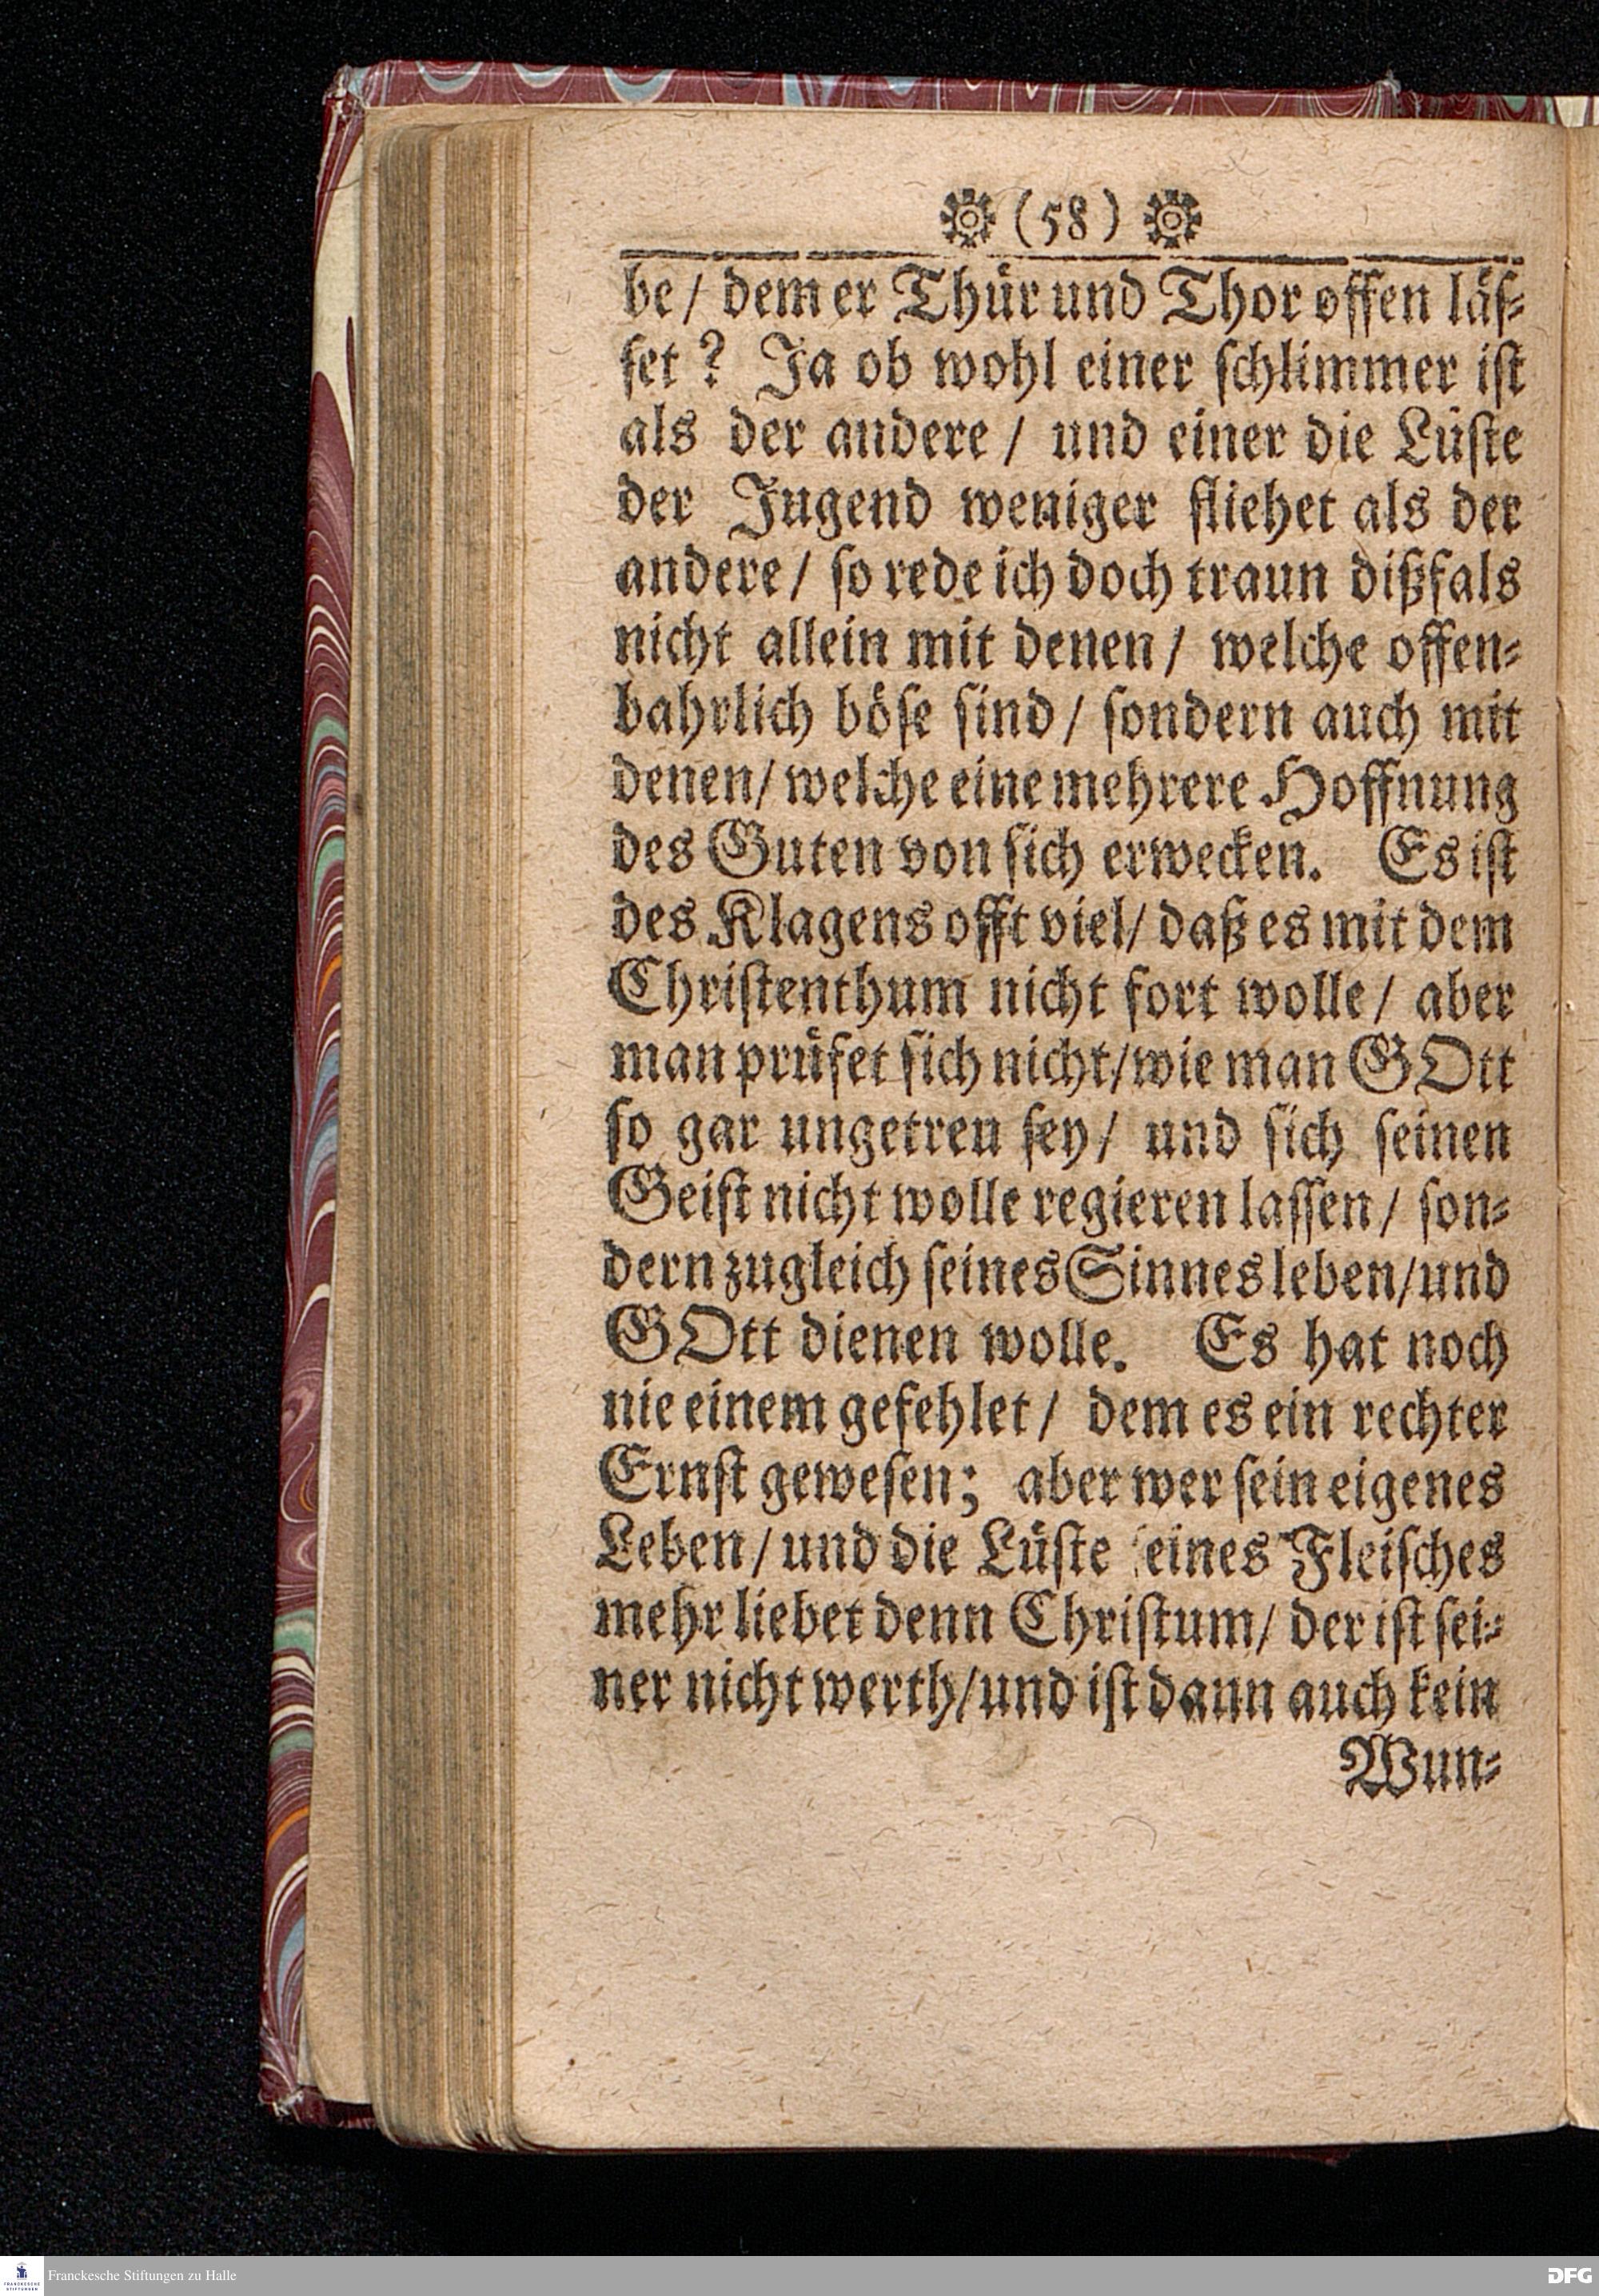 (58)
be / dem er Thür und Thor offen läſ-
ſet? Ja ob wohl einer ſchlimmer iſt
als der andere / und einer die Lüſte
der Jugend weniger fliehet als der
andere / ſo rede ich doch traun dißfals
nicht allein mit denen / welche offen-
bahrlich böſe ſind / ſondern auch mit
denen / welche eine mehrere Hoffnung
des Guten von ſich erwecken. Es iſt
des Klagens offt viel / daß es mit dem
Chriſtenthum nicht fort wolle / aber
man prüfet ſich nicht / wie man GOtt
ſo gar ungetreu ſey / und ſich ſeinen
Geiſt nicht wolle regieren laſſen / ſon-
dern zugleich ſeines Sinnes leben / und
GOtt dienen wolle. Es hat noch
nie einem gefehlet / dem es ein rechter
Ernſt geweſen; aber wer ſein eigenes
Leben / und die Lüſte ſeines Fleiſches
mehr liebet denn Chriſtum / der iſt ſei-
ner nicht werth / und iſt dann auch kein
Wun-
FRANCKESCHE STIFTUNGEN
Franckesche Stiftungen zu Halle
DFG